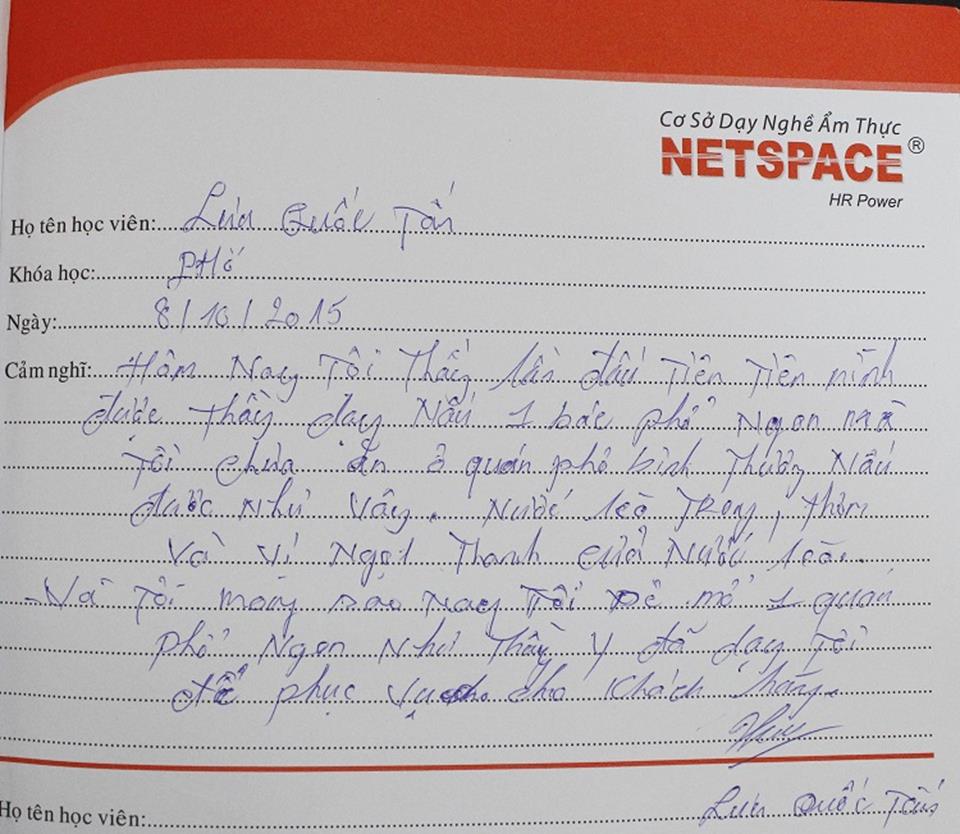 Cơ Sở Dạy Nghề Ẩm Thực
NETSPACE®
HR Power
Họ tên học viên: Lưu Quốc Tấn
Khóa học: Phở
Ngày: 8/10/2015
Cảm nghĩ: Hôm Nay Tôi Thấy lần đầu Tiên Tiên mình
được Thầy dạy Nấu 1 bác phở Ngon mà
Tôi chưa ăn ở quán phở bình Thường Nấu
được Như Vậy. Nước lèo Trong, Thơm
Và Vị Ngọt Thanh của Nước lèo.
- Và Tôi mong sao Nay Tôi sẽ mở 1 quán
phở Ngon Như Thầy Y đã dạy Tôi
để phục vụ cho Khách hàng.
Lưu Quốc Tấn
Họ tên học viên: